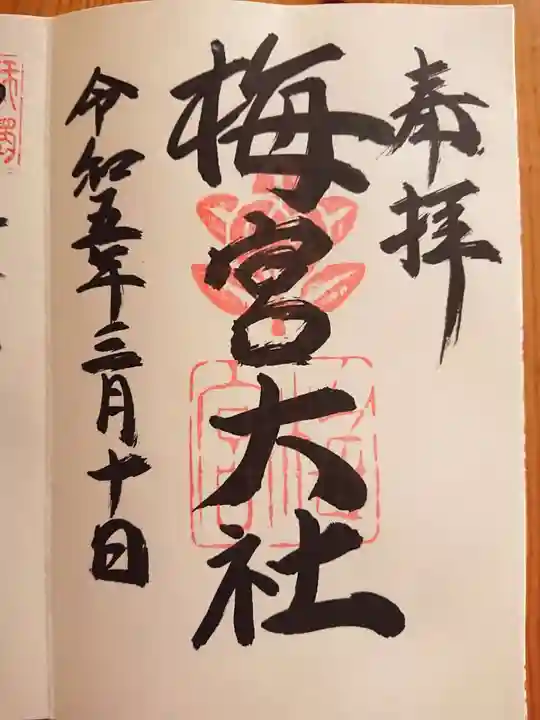 奉拝
梅宮大社
令和五年三月十日
梅宮